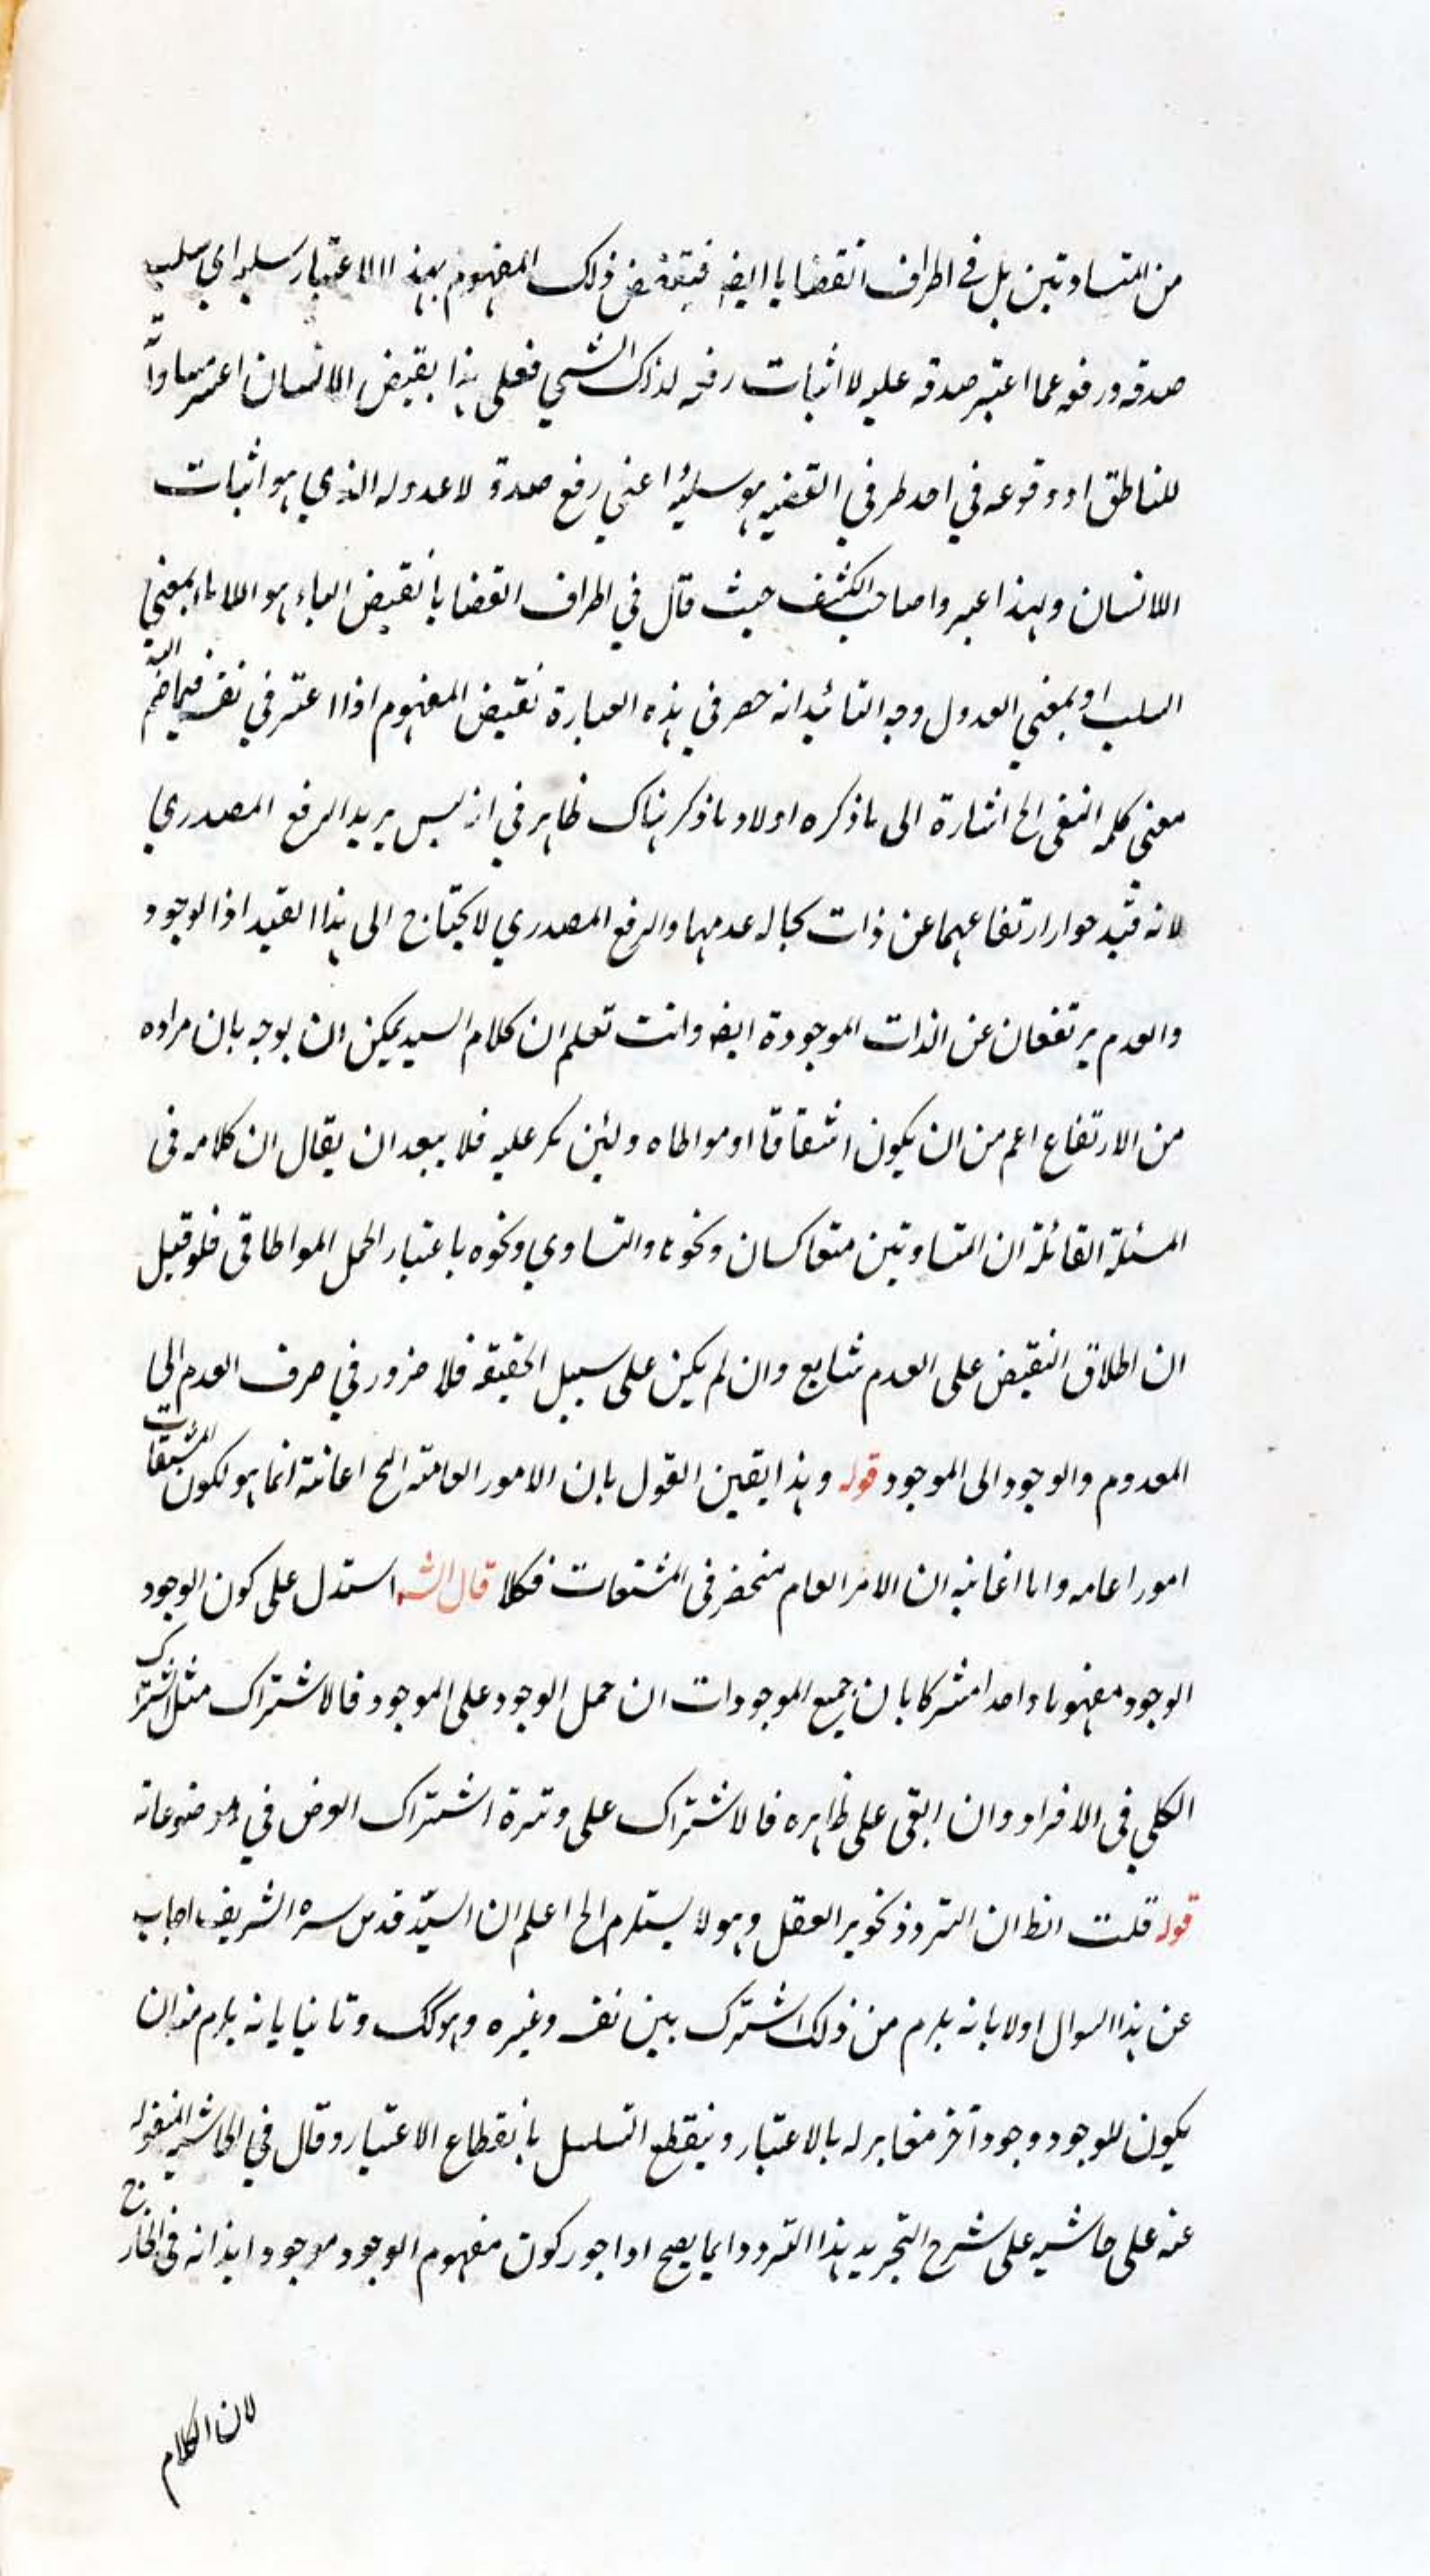 من المتساويتين بل في اطراف القضايا ايضه فنقيض ذلك المفهوم بهذا الاعتبار سلبه اي سلب
صدقه ورفعه عما اعتبر صدقه عليه لا اثبات رفعه لذلك الشي فعلى هذا نقيض الانسان اعم مساويا
للناطق او وقوعه في احد طرفي القضيه هو سلبه اعني رفع صدقه لا عدوله الذي هو اثبات
اللاانسان ولهذا عبر صاحب الكشف حيث قال في اطراف القضايا نقيض الباء هو اللاباء بمعني
السلب او بمعني العدول وجه التائيد انه حصر في هذه العبارة نقيض المفهوم اذا اعتبر في نفسه فيما ضم اليه
معني كلمه النفى الخ اشارة الى ما ذكره اولا وما ذكر هناك ظاهر في انه ليس يريد الرفع المصدري
لانه قيد جواز ارتفاعهما عن ذات بحاله عدمهما والرفع المصدري لا يحتاج الى هذا القيد اذ الوجود
والعدم يرتفعان عن الذات الموجودة ايضه وانت تعلم ان كلام السيد يمكن ان يوجه بان مراده
من الارتفاع اعم من ان يكون اشقاقا او مواطاه ولئن نكر عليه فلا يبعد ان يقال ان كلامه فى
المسئلة القائلة ان المتساويتين متعاكسان ونحوها والتساوي ونحوه باعتبار الحمل المواطاقى فلو قيل
ان اطلاق النقيض على العدم شايع وان لم يكن على سبيل الحقيقه فلا ضرور في صرف العدم الى
المعدوم والوجود الى الموجود قوله وهذا يقين القول بان الامور العامة الخ اعانته انما هو لكون المشتقات
امورا عامه واما اغانيه ان الامر العام منحصر فى المشتقات فكلا قال الشه استدل على كون الوجود
الوجود مفهوما واحدا مشركا بان جميع الموجودات ان حمل الوجود على الموجود فالاشتراك مثل اشتراك
الكلي فى الافراد وان ابقى على ظاهره فالاشتراك على وتيرة اشتراك العرض في موضوعاته
قوله قلت الظ ان التردد تجويز العقل وهو لا يستلزم الخ اعلم ان السيد قدس سره الشريف اجاب
عن هذا السوال اولا بانه يلزم من ذلك اشتراك بين نفسه وغيره وهو كك وثانيا بانه يلزم منه ان
يكون للوجود وجود آخر مغاير له بالاعتبار وينقطع التسلسل بانقطاع الاعتبار وقال في الحاشيه المنقوله
عنه على حاشيه على شرح التجريد هذا التردد انما يصح اذا جوز كون مفهوم الوجود موجودا بذاته فى الخارج
لان الكلام